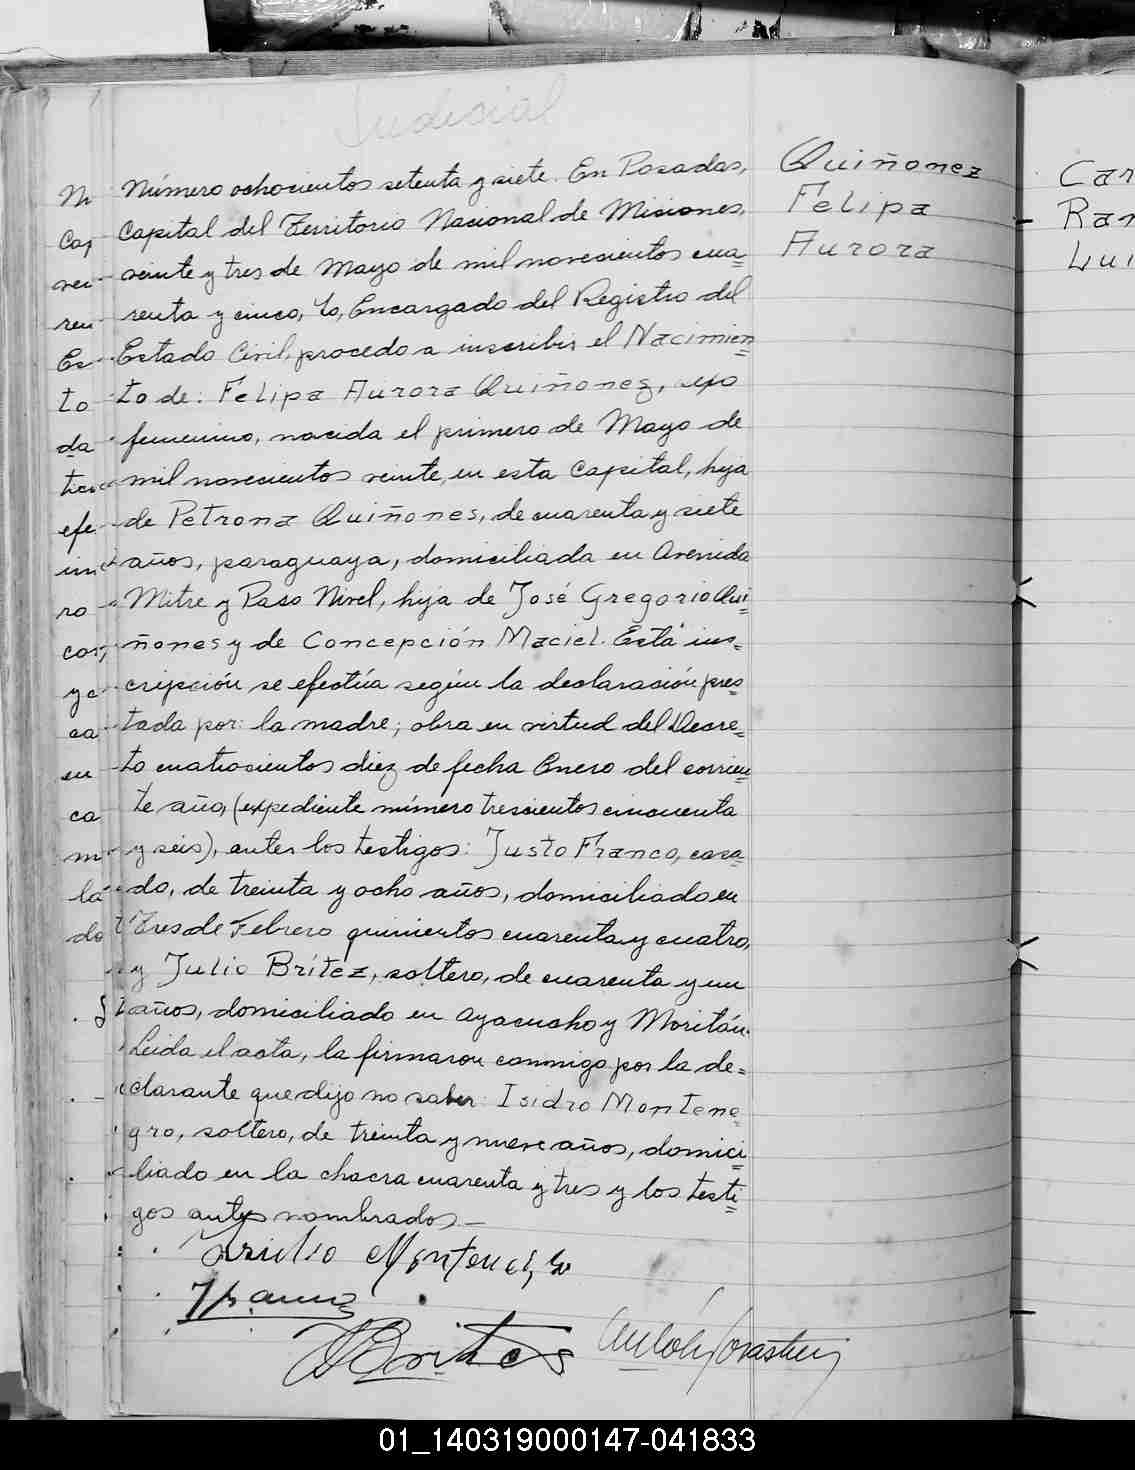 Judicial
Número ochocientos setenta y siete. En Posadas,
Capital del Territorio Nacional de Misiones,
veinte y tres de Mayo de mil novecientos cua=
renta y cinco, Yo, Encargado del Registro del
Estado Civil, procedo a inscribir el Nacimien=
to de: Felipa Aurora Quiñonez, sexo
femenino, nacida el primero de Mayo de
mil novecientos veinte, en esta Capital, hija
de Petrona Quiñones, de cuarenta y siete
años, paraguaya, domiciliada en Avenida
Mitre y Paso Nivel, hija de José Gregorio Qui=
ñones y de Concepción Maciel. Está ins=
cripción se efectúa según la declaración pres=
tada por: la madre; obra en virtud del Decre=
to cuatrocientos diez de fecha Enero del corrien=
te año, (expediente número trescientos cincuenta
y seis), antes los testigos: Justo Franco, casa=
do, de treinta y ocho años, domiciliado en
Tres de Febrero quinientos cuarenta y cuatro,
y Julio Brítez, soltero, de cuarenta y un
años, domiciliado en Ayacucho y Moritán.
Leida el acta, la firmaron conmigo por la de=
clarante que dijo no saber: Isidro Montene=
gro, soltero, de treinta y nueve años, domici=
liado en la chacra cuarenta y tres y los testi=
gos antes nombrados.—
Quiñonez
Felipa
Aurora
Car
Ran
Lui
N
Cap
vei
ren
Es
to
da
efe
ro
y c
ca
en
ca
la
do
01_140319000147-041833